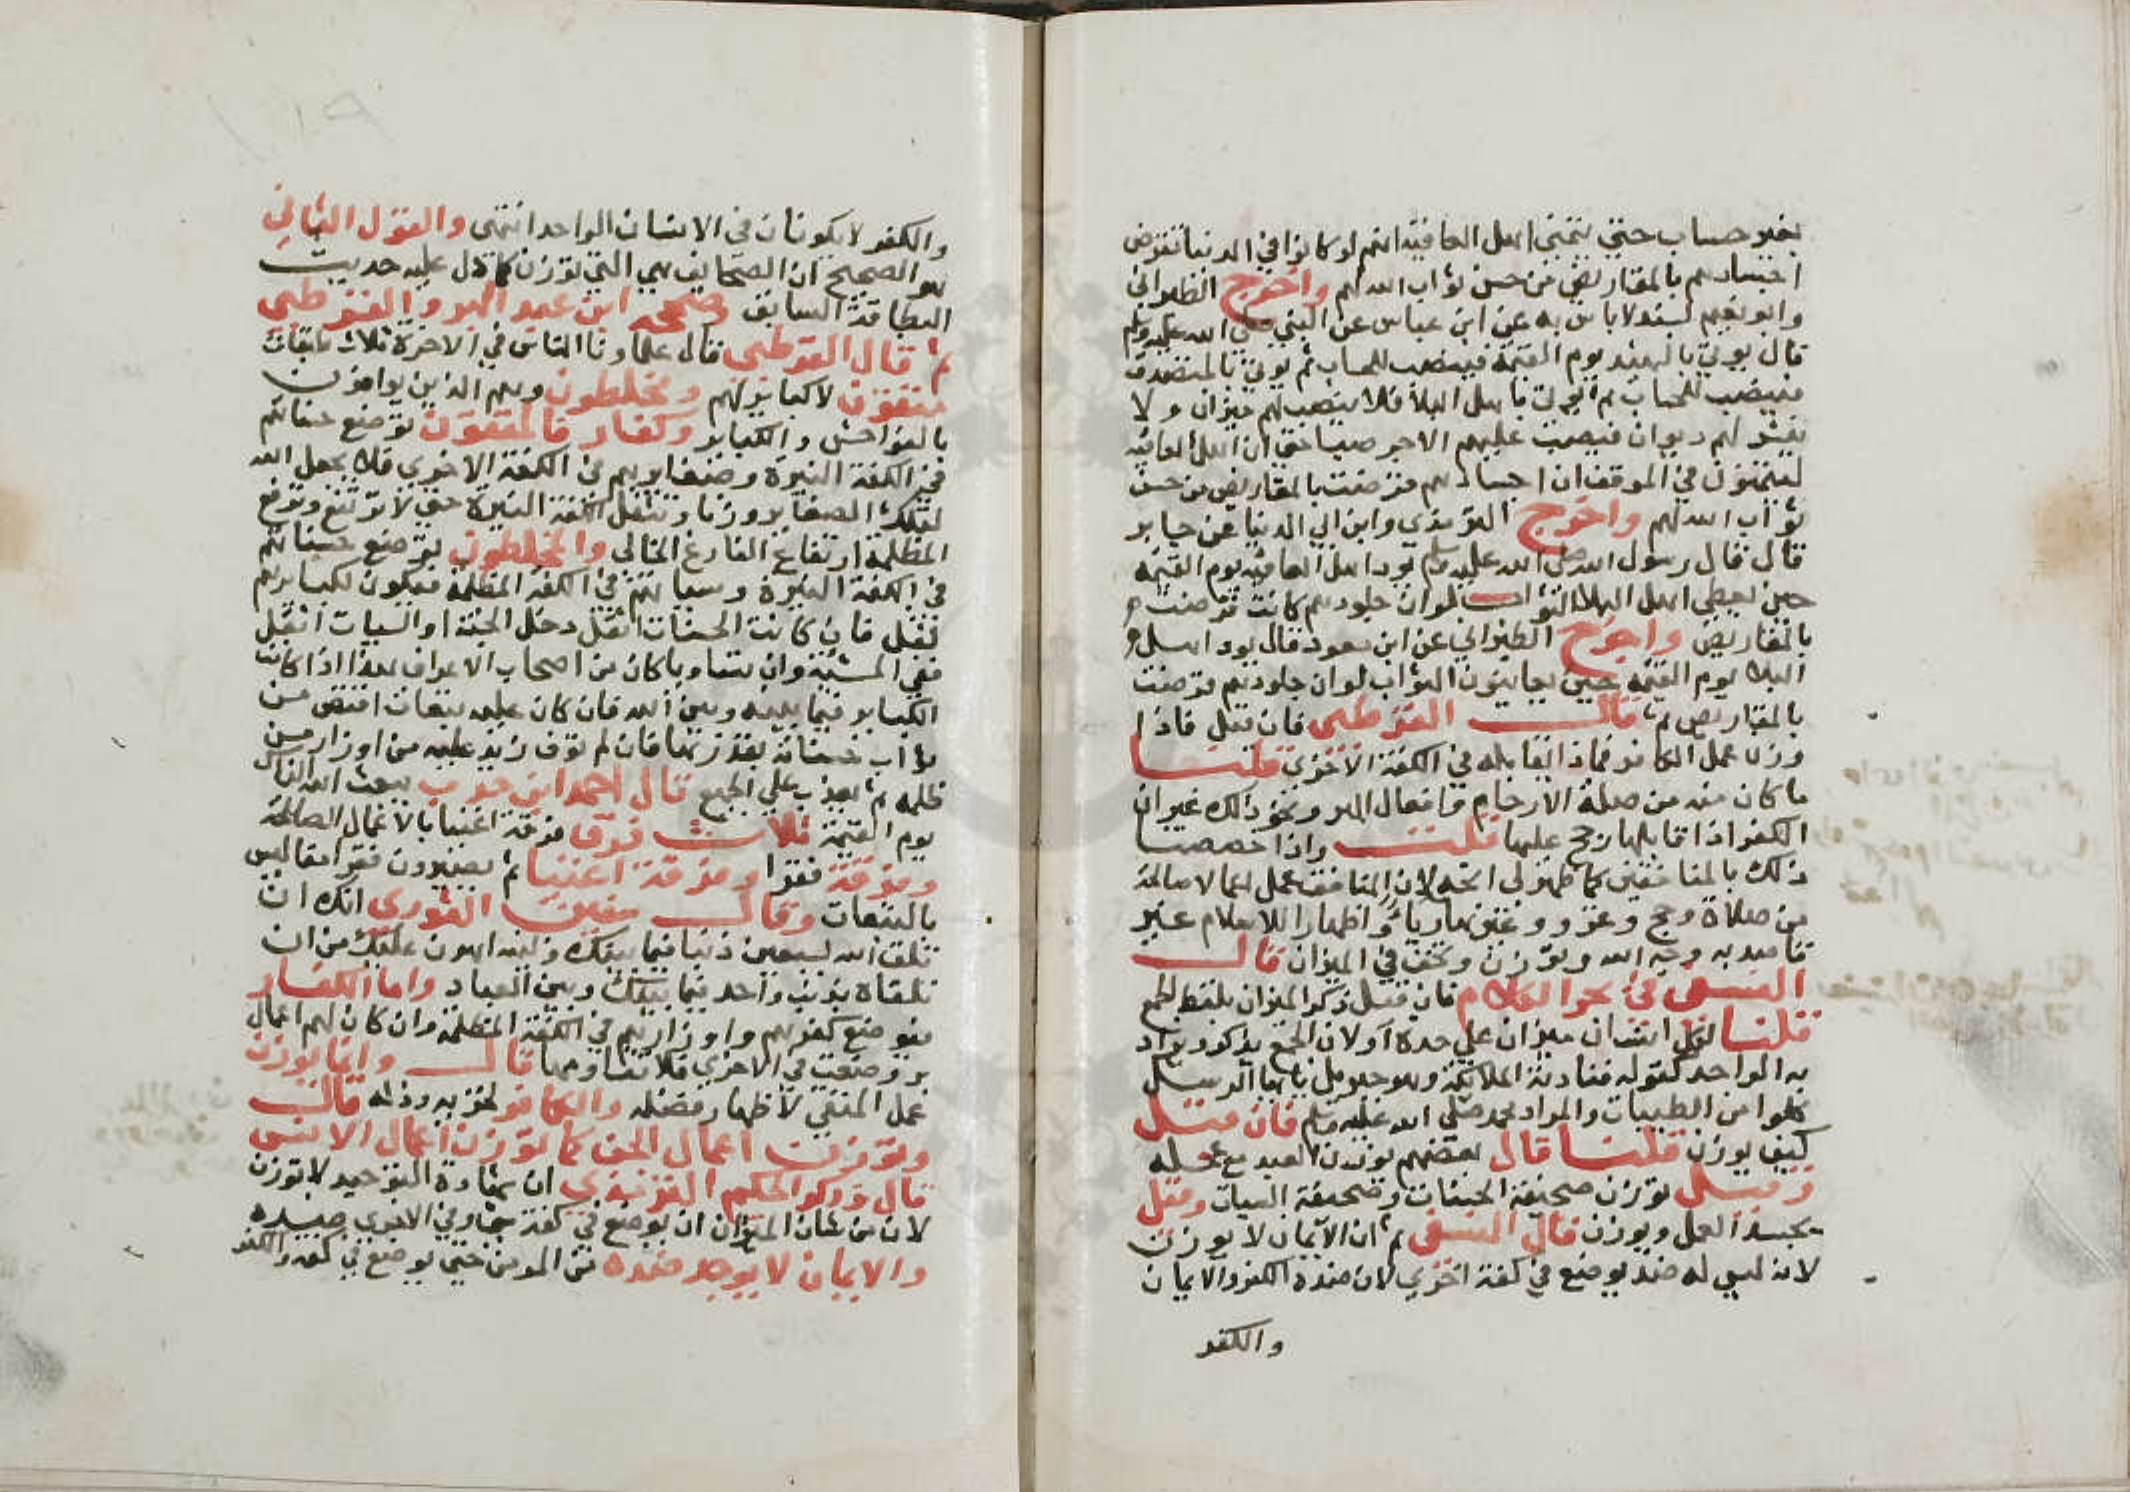 بغير حساب حتي يتمني اهل العافية انهم لو كانوا في الدنيا تقرض
اجسادهم بالمقاريض من حسن ثواب الله لهم واخرج الطبراني
وابو نعيم بسند لاباس به عن ابن عباس عن النبي صلي الله عليه وسلم
قال يوتي بالشهيد يوم القيمة فينصب للحساب ثم يوتي بالمتصدق
فينصب للحساب ثم يوتي باهل البلا فلا ينصب لهم ميزان ولا
ينشر لهم ديوان فيصب عليهم الاجر صبا حتي ان اهل العافية
ليتمنون في الموقف ان اجسادهم قرضت بالمقاريض من حسن
ثواب الله لهم واخرج الترمذي وابن ابي الدنيا عن جابر
قال قال رسول الله صلي الله عليه وسلم يود اهل العافية يوم القيمة
حين يعطي اهل البلا الثواب لو ان جلودهم كانت قرضت
بالمقاريض واخرج الطبراني عن ابن مسعود قال يود اهل
البلا يوم القيمة حين يعاينون الثواب لو ان جلودهم قرضت
بالمقاريض ثم قال القرطبي فان قيل فاذا
وزن عمل الكافر فماذا يقابله في الكفة الاخري قلنا
ما كان منه من صلة الارحام وافعال البر ونحو ذلك غير ان
الكفر اذا قابلها رجح عليها قلت واذا خصصنا
ذلك بالمنافقين كما ظهر لي اتجه لان المنافق عمل اعمالا صالحة
من صلاة وحج وغزو وغيرها رياء واظهارا للاسلام غير
قاصد به وجه الله وتوزن وتخف في الميزان قال
النسفي في بحر الكلام فان قيل ذكر الميزان بلفظ الجمع
قلنا لكل انسان ميزان علي حدة او لان الجمع يذكر ويراد
به الواحد كقوله فنادته الملائكة وهو جبريل يا ايها الرسل
كلوا من الطيبات والمراد محمد صلي الله عليه وسلم فان قيل
كيف يوزن قلنا قال بعضهم يوزن العبد مع عمله
وقيل توزن صحيفة الحسنات وصحيفة السيات وقيل
يجسد العمل ويوزن قال النسفي ثم ان الايمان لا يوزن
لانه ليس له ضد يوضع في كفة اخري لان ضده الكفر والايمان
والكفر
والكفر لا يكونان في الانسان الواحد انتهي والقول الثاني
هو الصحيح ان الصحايف هي التي توزن كما دل عليه حديث
البطاقة السابق وصححه ابن عبد البر والقرطبي
ثم قال القرطبي قال علماونا الناس في الاخرة ثلاث طبقات
متقون لا كباير لهم ومخلطون وهم الذين يوافون
بالفواحش والكباير وكفار فالمتقون توضع حسناتهم
في الكفة النيرة وصغايرهم في الكفة الاخري فلا يجعل الله
لتلك الصغاير وزنا وتثقل الكفة النيرة حتي لا ترتفع وترفع
المظلمة ارتفاع الفارغ الخالي والمخلطون توضع حسناتهم
في الكفة النيرة وسياتهم في الكفة المظلمة فيكون لكبايرهم
ثقل فان كانت الحسنات اثقل دخل الجنة او السيات اثقل
ففي المشية وان تساويا كان من اصحاب الاعراف هذا اذا كانت
الكباير فيما بينه وبين الله فان كان عليه تبعات اقتص من
ثواب حسناته بقدرها فان لم توف زيد عليه من اوزار من
ظلمه ثم يعذب علي الجميع قال احمد ابن حرب يبعث الله الناس
يوم القيمة ثلاث فرق فرقة اغنيا بالاعمال الصالحة
وفرقة فقرا وفرقة اغنيا ثم يصيرون فقرا مفاليس
بالتبعات وقال سفين الثوري انك ان
تلق الله بسبعين ذنبا فيما بينك وبينه اهون عليك من ان
تلقاه بذنب واحد فيما بينك وبين العباد واما الكفار
فيوضع كفرهم واوزارهم في الكفة المظلمة وان كان لهم اعمال
بر وضعت في الاخري فلا تقاومها قال وانما يوزن
عمل المتقي لاظهار فضله والكافر لخزيه وذله قال
وتوزن اعمال الجن كما توزن اعمال الانس
قال وذكر الحكيم الترمذي ان شهادة التوحيد لا توزن
لان من شان الميزان ان يوضع في كفة شي وفي الاخري ضده
والايمان لا يوجد ضده من المومن حتي يوضع في كفة والكفر